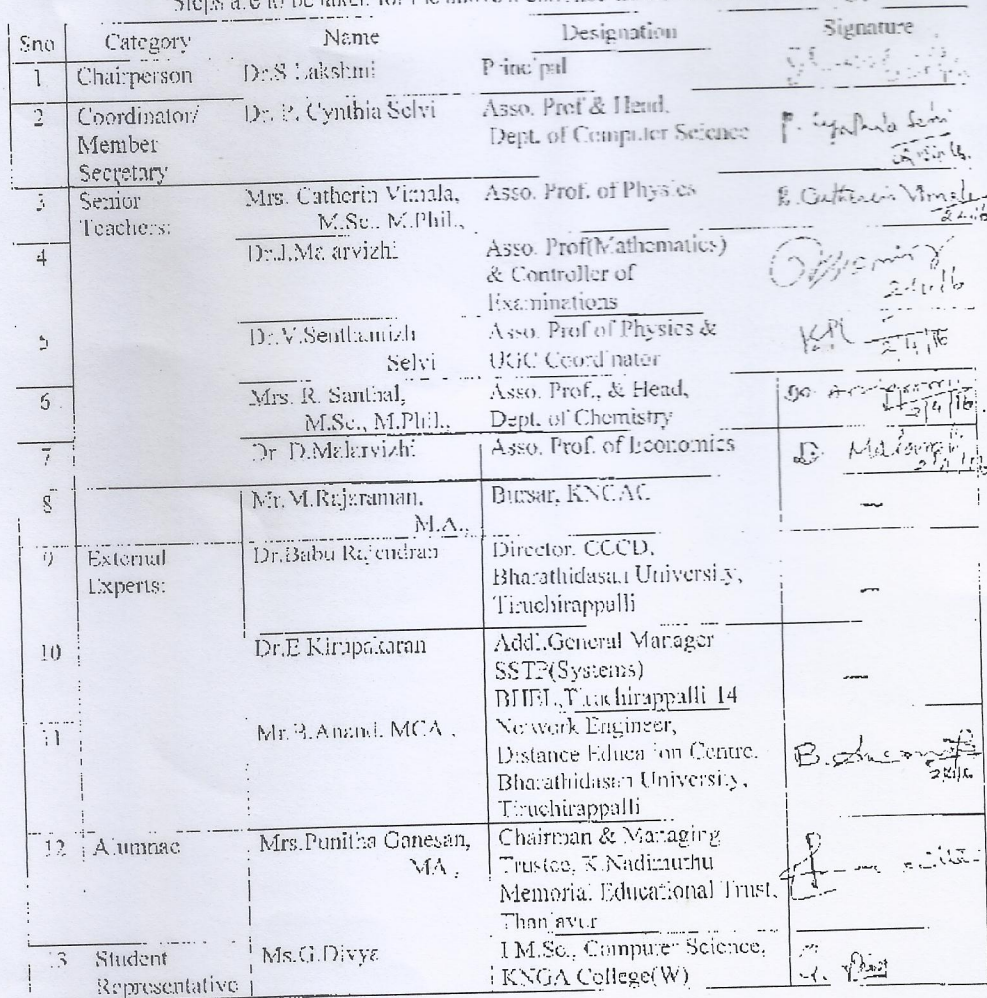 Steps are to be taken for the
Sno Category Name Designation Signature
1 Chairperson Dr.S.Lakshmi Principal
2 Coordinator/ Dr. P. Cynthia Selvi Asso. Prof & Head,
Member Dept. of Computer Science P. Cynthia Selvi
Secretary
3 Senior Mrs. Catherin Vimala, Asso. Prof. of Physics B. Catherin Vimala
Teachers: M.Sc., M.Phil.,
4 Dr.J.Malarvizhi Asso. Prof(Mathematics)
& Controller of
Examinations 2/4/16
5 Dr.V.Senthamizh Asso. Prof of Physics &
Selvi UGC Coordinator 2/4/16
6 Mrs. R. Santhal, Asso. Prof., & Head,
M.Sc., M.Phil., Dept. of Chemistry 2/4/16
7 Dr. D.Malarvizhi Asso. Prof. of Economics D. Malarvizhi
8 Mr.M.Rajaraman, Bursar, KNGAC –
M.A.,
9 External Dr.Babu Rajendran Director, CCCD,
Experts: Bharathidasan University, –
Tiruchirappalli
10 Dr.E Kirupakaran Addl.General Manager
SSTP(Systems) –
BHEL,Tiruchirappalli 14
11 Mr.B.Anand, MCA., Network Engineer,
Distance Education Centre, B. Anand
Bharathidasan University,
Tiruchirappalli
12 Alumnae Mrs.Punitha Ganesan, Chairman & Managing
MA., Trustee, K.Nadimuthu
Memorial Educational Trust,
Thanjavur
13 Student Ms.G.Divya I M.Sc., Computer Science,
Representative KNGA College(W)